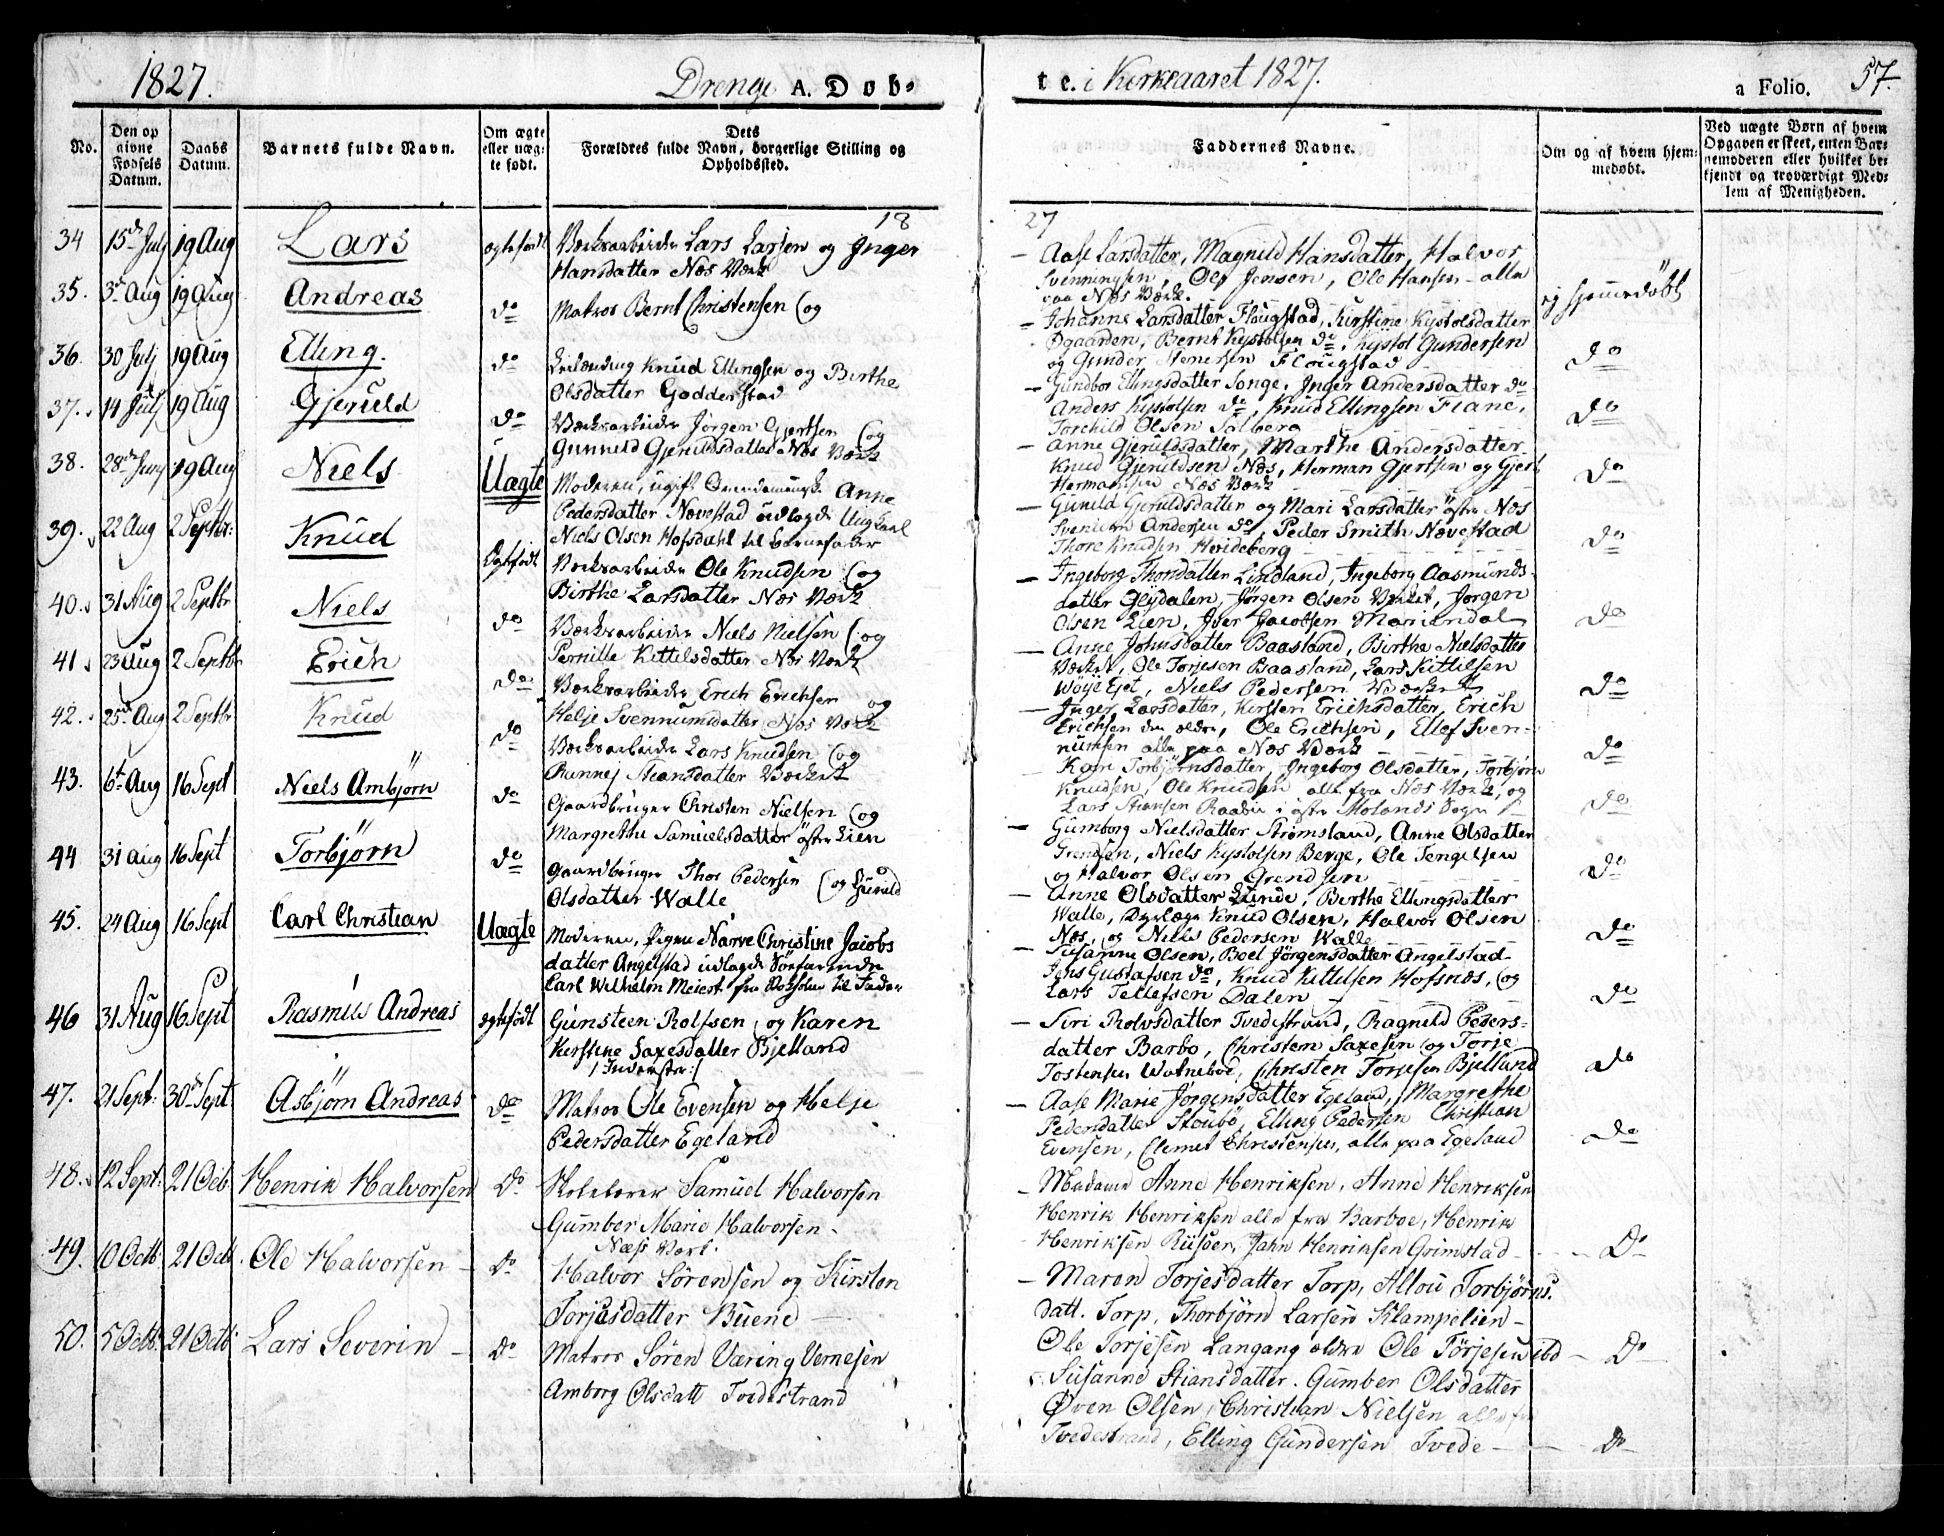 1827. Drenge A. Døb-
No.
Den op
givne
Fødsels
Datum.
Daabs
Datum.
Barnets fulde Navn.
Om ægte
eller uæg-
te født.
Dets
Forældres fulde Navn, borgerlige Stilling og
Opholdssted.
18
34 15de Julj 19 Aug Lars ægtefødt Værksarbeider Lars Larsen og Inger
Hansdatter Næs Værk
35. 3de Aug 19 Aug Andreas do Matros Bernt Christensen (og
36. 30 Julj 19 Aug Elling. do Knud Ellingsen og Birthe
Olsdatter Godderstad
37. 14 Julj 19 Aug Gjeruld do Værksarbeider Jørgen Gjertsen (og
Gunneld Gjeruldsdatter Næs Værk
38. 28de Junj 19 Aug Niels Uægte Moderen, ugift Anne
Pedersdatter Nævestad udlagde Ung Karl
Niels Olsen Hofsdahl til Barnefader
39. 22 Aug 2 Septbr: Knud Egtefødt Værksarbeider Ole Knudsen (og
Birthe Larsdatter Næs Værk
40. 31 Aug 2 Septbr Niels do Værksarbeider Niels Nielsen (og
Pernille Kittilsdatter Næs Værk
41. 23 Aug 2 Septbr Erich do Værksarbeider Erich Erichsen og
Helje Svennumsdatter Næs Værk
42. 25de Aug 2 Septbr Knud do Værksarbeider Lars Knudsen (og
Rannej Stiansdatter Værket
43. 6te Aug 16 Sept Niels Ambjørn do Gaardbruger Christen Nielsen (og
Margrethe Samuelsdatter østre Lien
44 31 Aug 16 Sept Torbjørn do Gaardbruger Thor Pedersen (og Guneld
Olsdatter Walle
45. 24 Aug 16 Sept Carl Christian Uægte Moderen, Pigen Narve Christine Jacobs
datter Angelstad udlagde Søefarende
Carl Wilhelm Meiert fra til Fader
46 31 Aug 16 Sept Rasmus Andreas ægtefødt Gunsteen Rolfsen, og Karen
Kirstine Saxesdatter Bjelland
/:Inderster:/
47. 21 Sept: 30de Sept Asbjørn Andreas do Matros Ole Evensen og Helje
Pedersdatter Egeland
48. 12 Sept: 21 Octb. Henrik Halvorsen Do Skolelærer Samuel Halvorsen
Gumber Marie Halvorsen.
Næss Værk.
49. 10 Octb 21 Octb. Ole Halvorsen Do Halvor Sørensen og Kirsten
Torjesdatter Buene
50. 5 Octb: 21 Octb: Lars Severin Do Matros Søren Væring Vernesen
Amborg Olsdatt Tvedestrand
te. i Kirkeaaret 1827. a Folio. 57.
Faddernes Navne.
Om og af hvem hjem-
medøbt.
Ved uægte Børn af hvem
Opgaven er skeet, enten Bar-
nemoderen eller hvilket be-
kjendt og troværdigt Med-
lem af Menigheden.
27
Aase Larsdatter, Magnild Hansdatter, Halvor
Svenningsen, Ole Jensen, Ole Hansen - alle
paa Næs Værk. ej hjemmedøbt
Johanne Larsdatter Flougstad, Kirstine Kystolsdatter
Øgaarden, Bernt Kystolsen do, Kystol Gundersen
og Gunder Stenersen Flougstad do
Gundbor Ellingsdatter Songe, Inger Andersdatter do
Anders Kystolsen do, Knud Ellingsen Fiane, do
Torchild Olsen Solberg
Anne Gjeruldsdatter, Marthe Andersdatter
Knud Gjeruldsen Næs, Herman Gjertsen og Gjert do
Hermansen Næs Værk
Guneld Gjeruldsdatter og Mari Larsdatter østre Næs
Andersen do, Peder Smith Nævestad do
Thore Knudsen Hvideberg
Ingeborg Thorsdatter Lindland, Ingeborg Aasmunds-
datter Gljdalen, Jørgen Olsen Værket, Jørgen
Olsen Lien, Iver Jacobsen Mariendal do
Anne Johnsdatter Baasland, Birthe Nielsdatter
Værket, Ole Torjesen Baasland, Lars Kittilsen
Niels Pedersen Værket do
Inger Larsdatter, Kirsten Erichsdatter, Erich
Erichsen den ældre, Ole Erichsen, Ellef Sven-
numsen alle paa Næs Værk do
Kari Torbjørnsdatter, Ingeborg Olsdatter, Torbjørn
Knudsen, Ole Knudsen alle fra Næs Værk, og
Lars Stiansen i østre Molands Sogn do
Gumborg Nielsdatter Strømsland, Anne Olsdatter
Grendsen, Niels Kystolsen Berge, Ole Tengelsen
og Halvor Olsen Grendsen do
Anne Olsdatter Lunde, Birthe Ellingsdatter
Walle, Knud Olsen, Halvor Olsen
Næs, og Niels Pedersen Walle do
Susanne Olsen, Boel Jørgensdatter Angelstad
Jens Gustafsen do, Knud Kittilsen Hofsnæs, (og
Lars Tellefsen Dalen do
Siri Rolvsdatter Tvedestrand, Ragnild Peders-
datter Barbo, Christen Saxesen og Torje
Tostensen Christen Torjesen Bjelland do
Aase Marie Jørgensdatter Egeland, Margrethe
Pedersdatter Stoubø, Elling Pedersen Christian
Evensen, Clemet Christensen, alle paa Egeland do
Madame Anne Henriksen, Anne Henriksen
Henrik Henriksen alle fra Barboe, Henrik
Henriksen Riisøer, Jahn Henriksen Grimstad Do
Maren Torjesdatter Torp, Allou Torbjørns.
datt. Torp, Thorbjørn Larsen Klampelien
Ole Torjesen Langang ældre Ole Torjesen ibd Do
Susanne Stiansdatter. Gumber Olsdatter
Øven Olsen, Christian Nielsen alle fra
Tvedestrand, Elling Gundersen Tvede Do